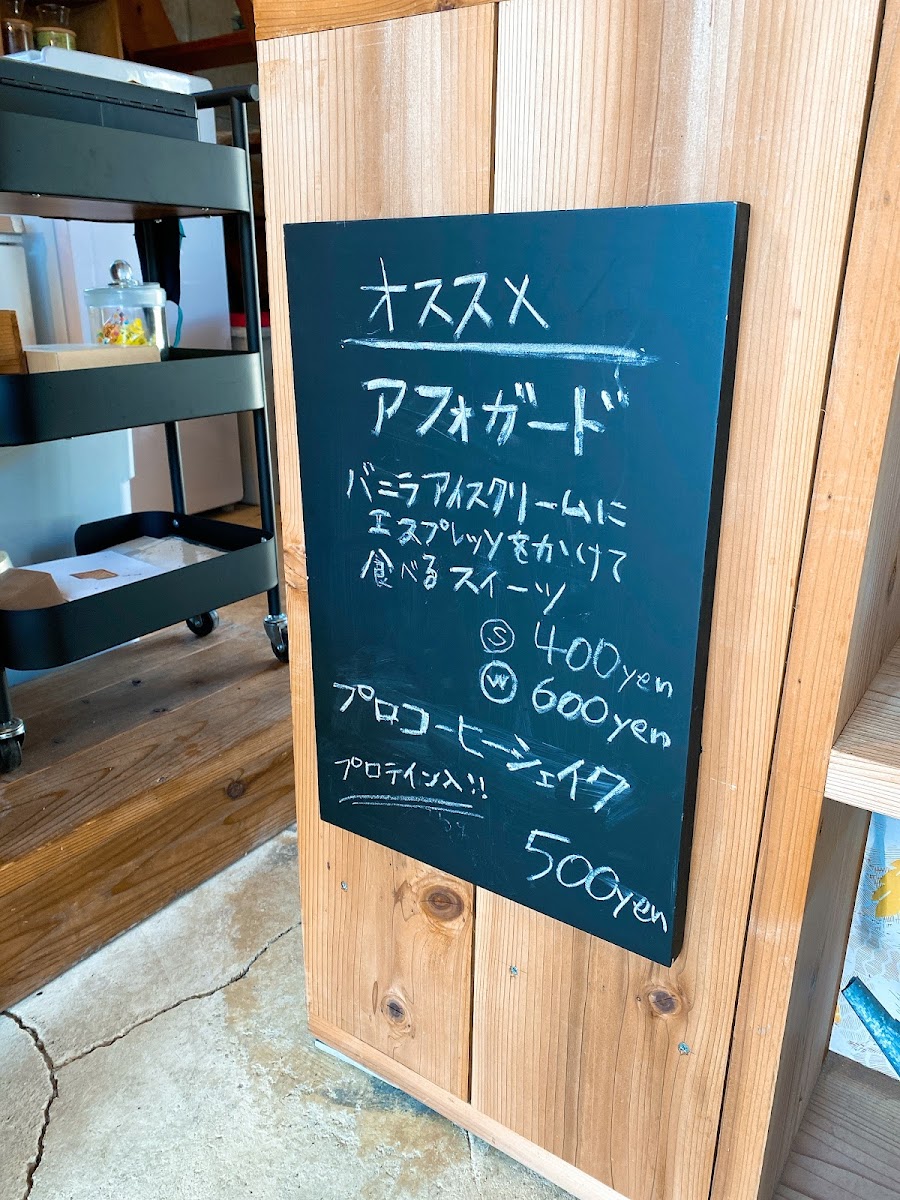 オススメ
アフォガード
バニラアイスクリームに
エスプレッソをかけて
食べるスイーツ
Ⓢ 400yen
Ⓦ 600yen
プロコーヒーシェイク
プロテイン入!!
500yen